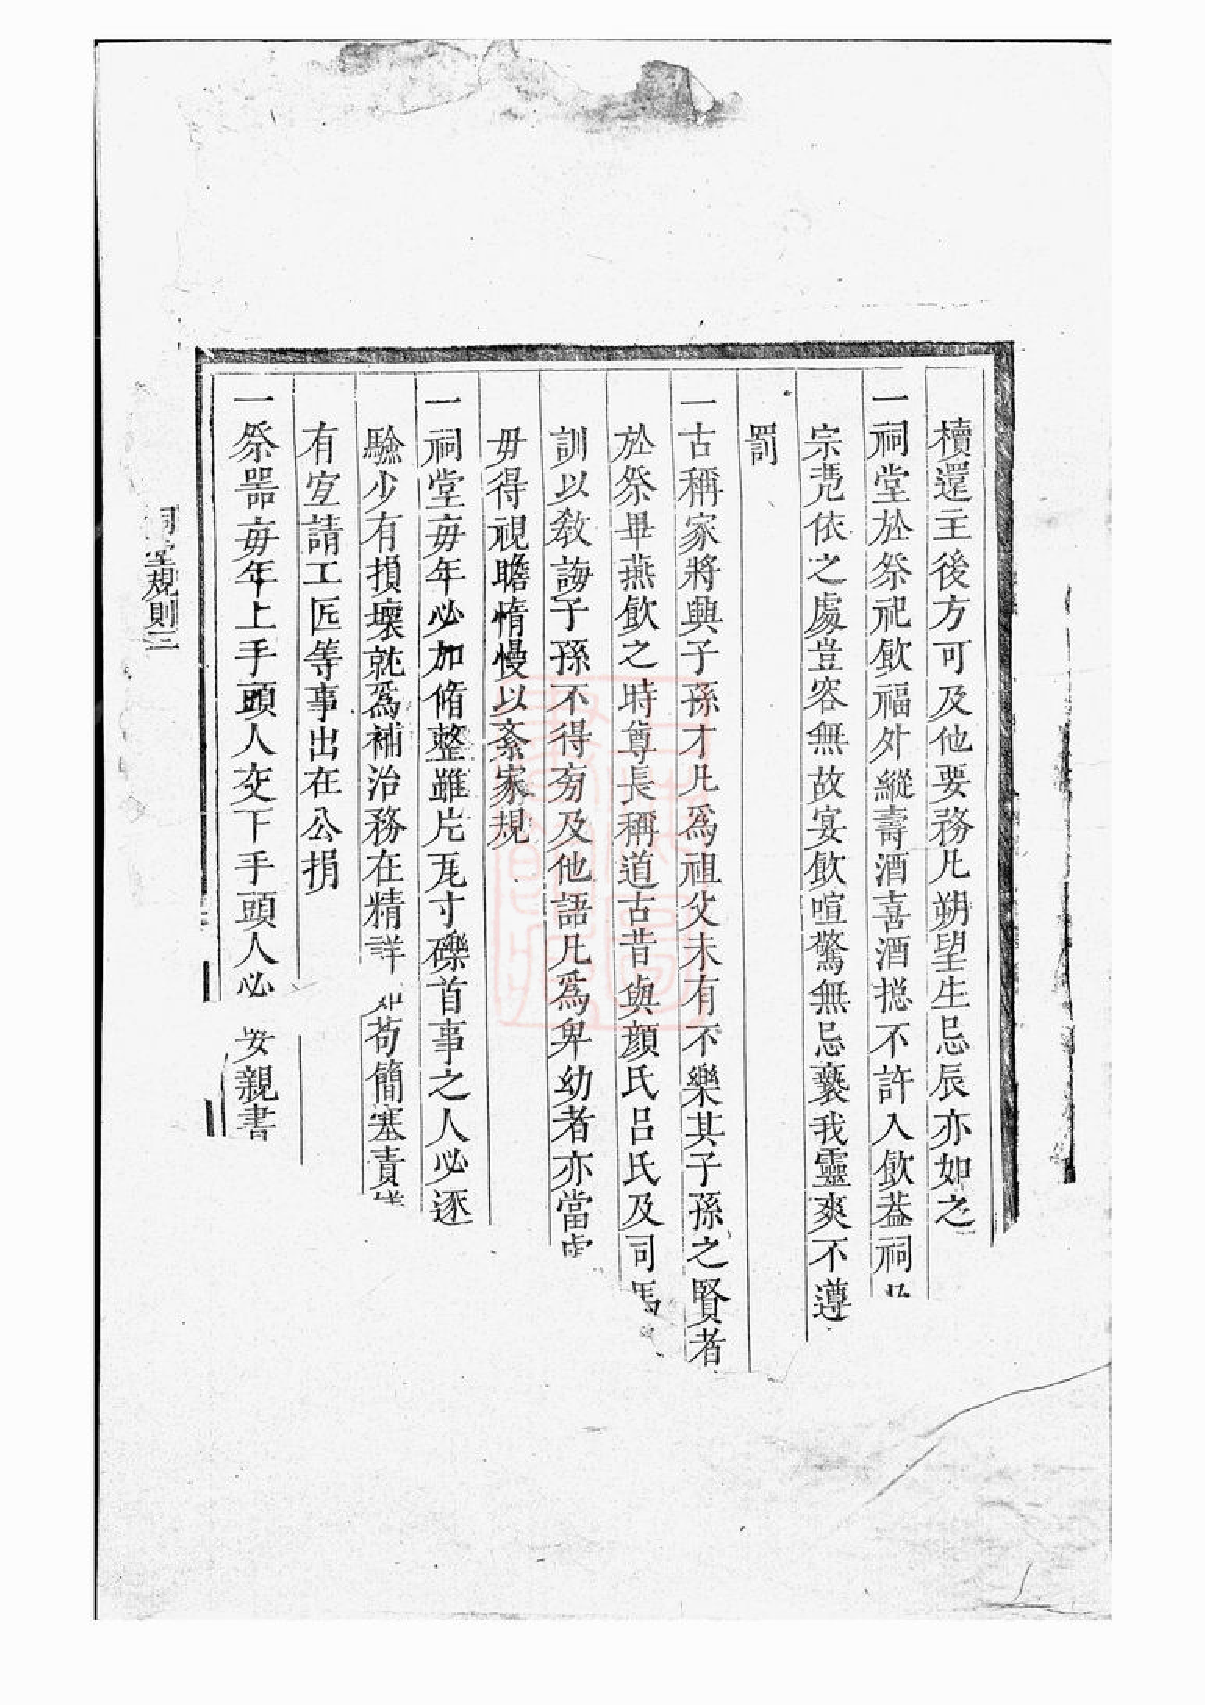 櫝還主後方可及他要務凡朔望生忌辰亦如之
一祠堂於祭祀飲福外縱壽酒喜酒摠不許入飲葢祠
宗凴依之處豈容無故宴飲喧驚無忌褻我靈爽不遵
罰
一古稱家將興子孫才凡爲祖父未有不樂其子孫之賢者
於祭畢燕飲之時尊長稱道古昔與顔氏呂氏及司馬
訓以教誨子孫不得旁及他語凡爲卑幼者亦當
毋得視瞻惰慢以紊家規
一祠堂每年必加脩整雖片瓦寸礫首事之人必逐
驗少有損壞就爲補治務在精詳如苟簡塞責
有宜請工匠等事出在公捐
一祭器每年上手頭人交下手頭人必安親書
祠堂規則三